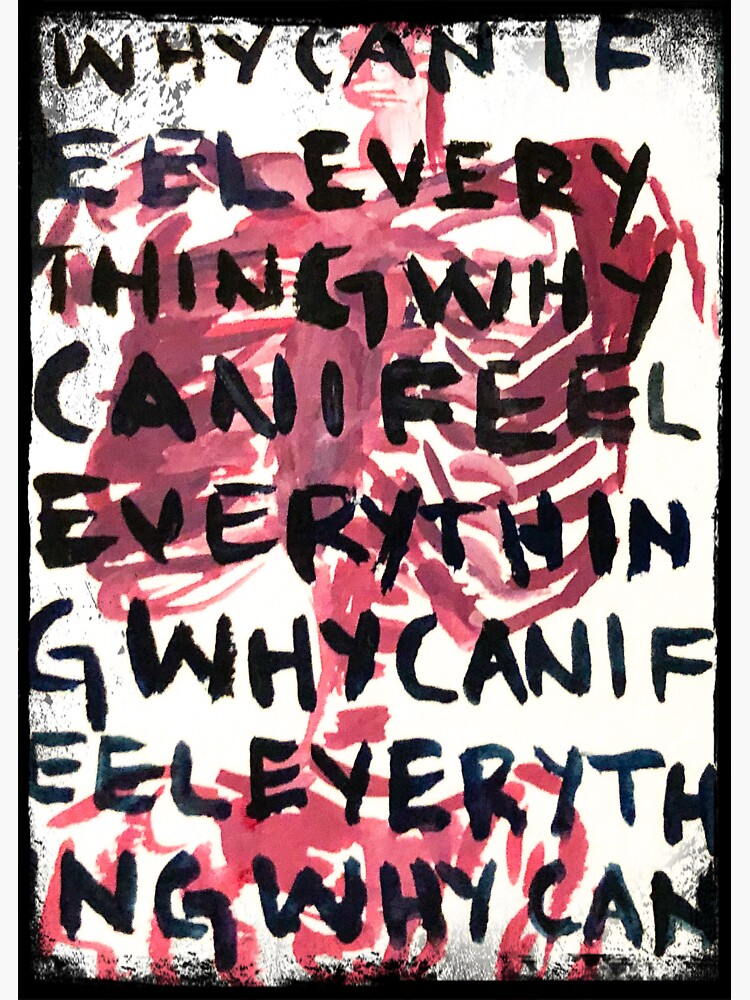 WHYCANIF
EELEVERY
THINGWHY
CANIFEEL
EVERYTHIN
GWHYCANIF
EELEVERYTH
INGWHYCAN